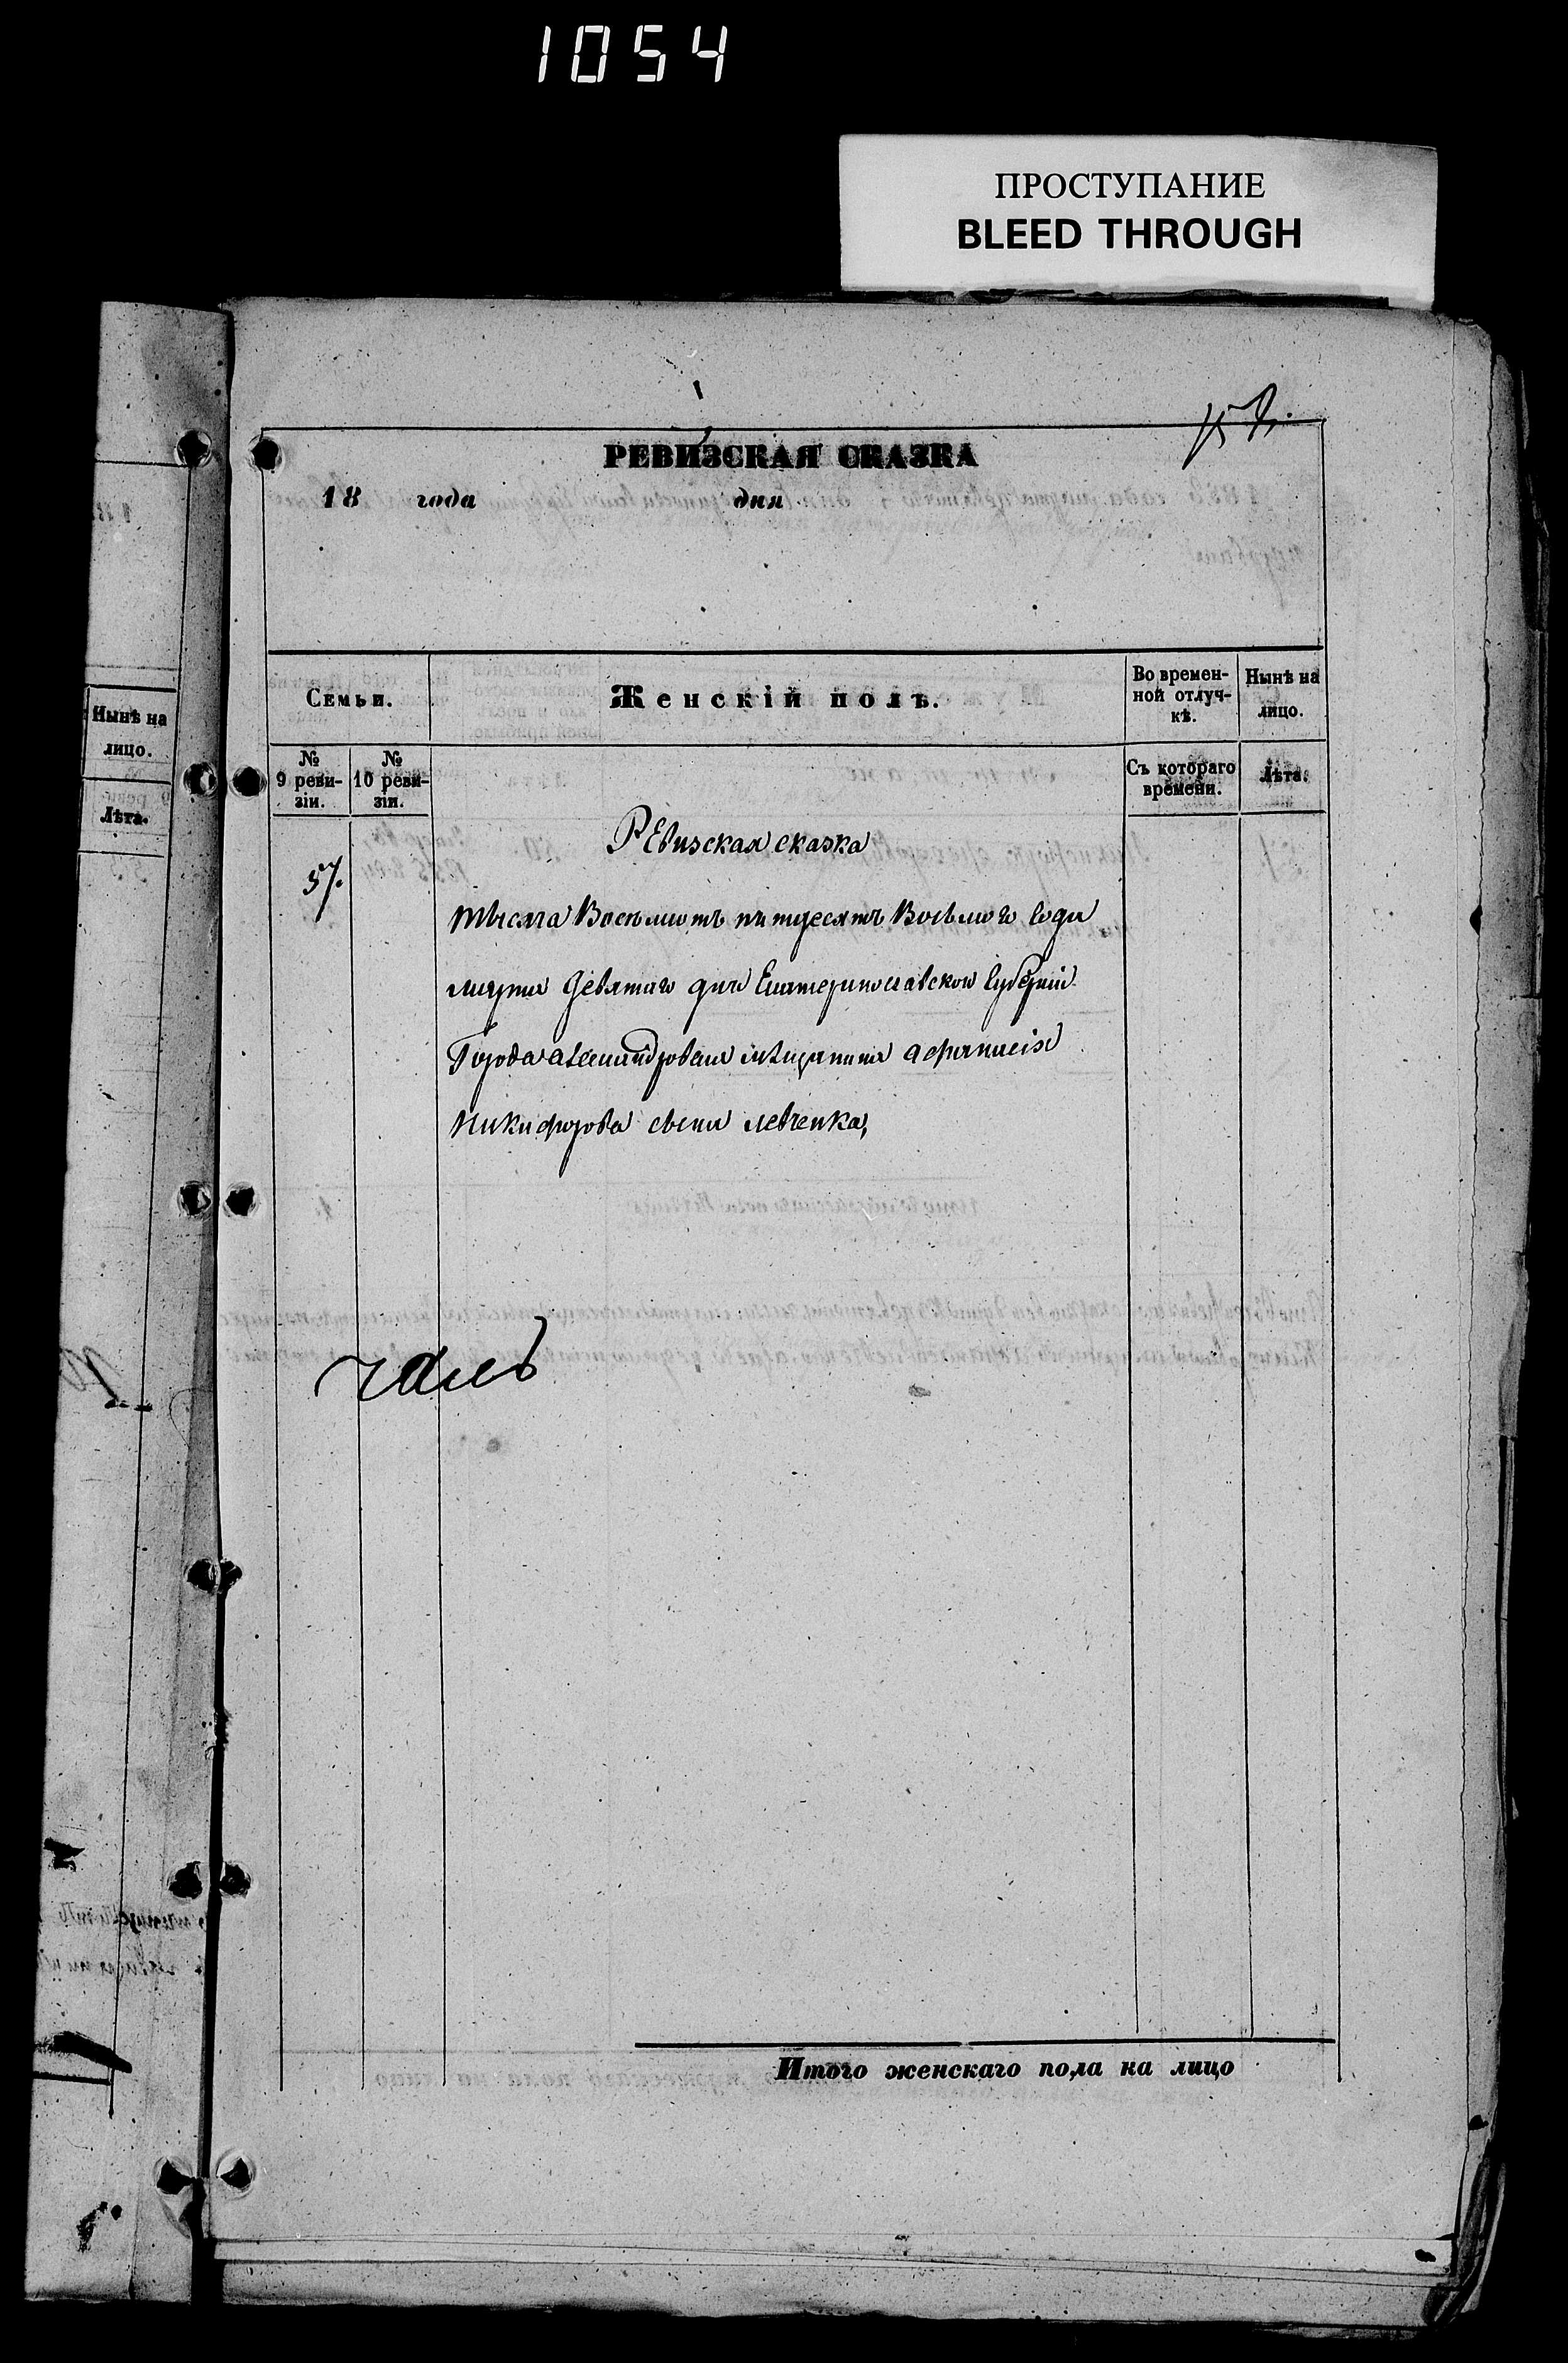 1054
ПРОСТУПАНИЕ
BLEED THROUGH
РЕВИЗСКАЯ СКАЗКА
18 года дня
Семьи.
Женскій полъ.
Во времен-
ной отлуч-
кѣ.
Нынѣ на
лицо.
№
9 реви-
зіи.
№
10 реви-
зіи.
Съ котораго
времени.
Лѣта.
Нынѣ на
лицо.
Лѣта.
Ревизская сказка
57.
тысяча Восемьсотъ пятдесятъ Восьмого Года
марта Девятаго дня Екатеринославской Губерніи
Города александровска мѣщанина афанасія
Никифорова сына левченка,
Итого женскаго пола на лицо